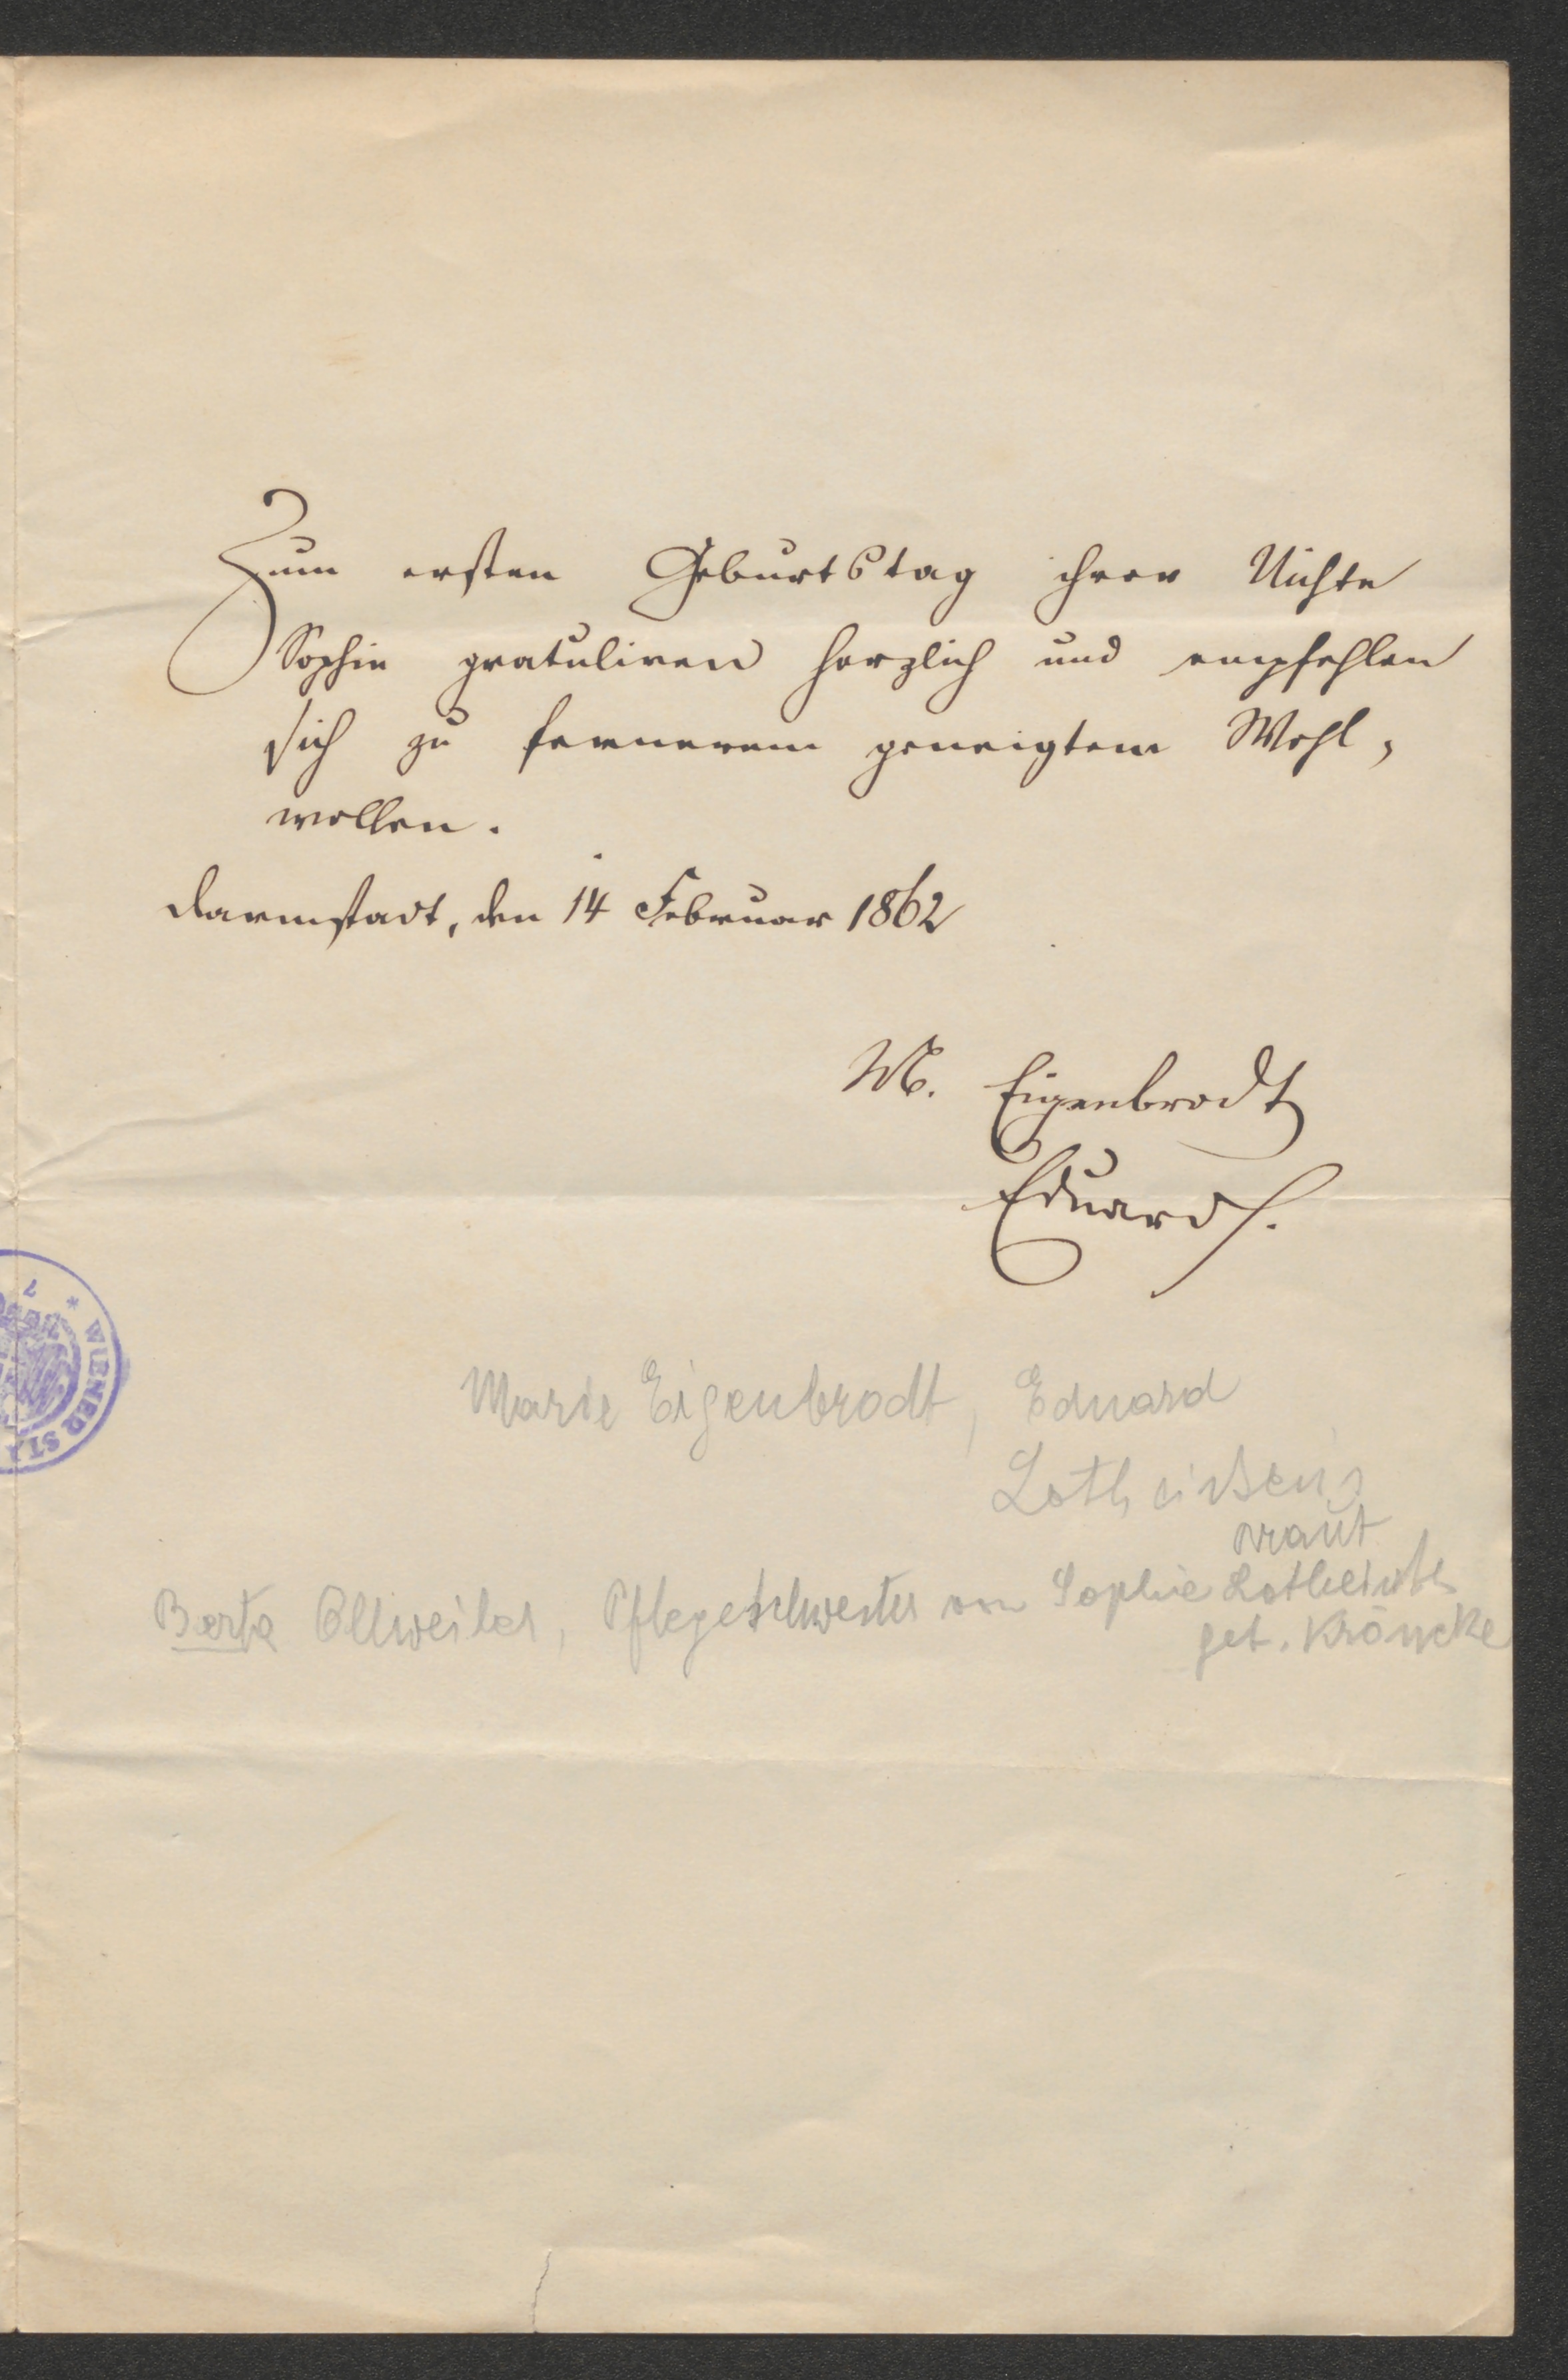 Zum ersten Geburtstag ihrer Nichte
Sophie gratuliren herzlich und empfehlen
sich zu fernerem geneigtem Wohl-
wollen.
Darmstadt, den 14 Februar 1862
M. Eigenbrodt
Eduard
Marie Eigenbrodt, Eduard
Lotheißens
Braut
Berta Ollweiler, Pflegeschwester von Sophie Lotheißen
geb. Kröncke
WIENER STA